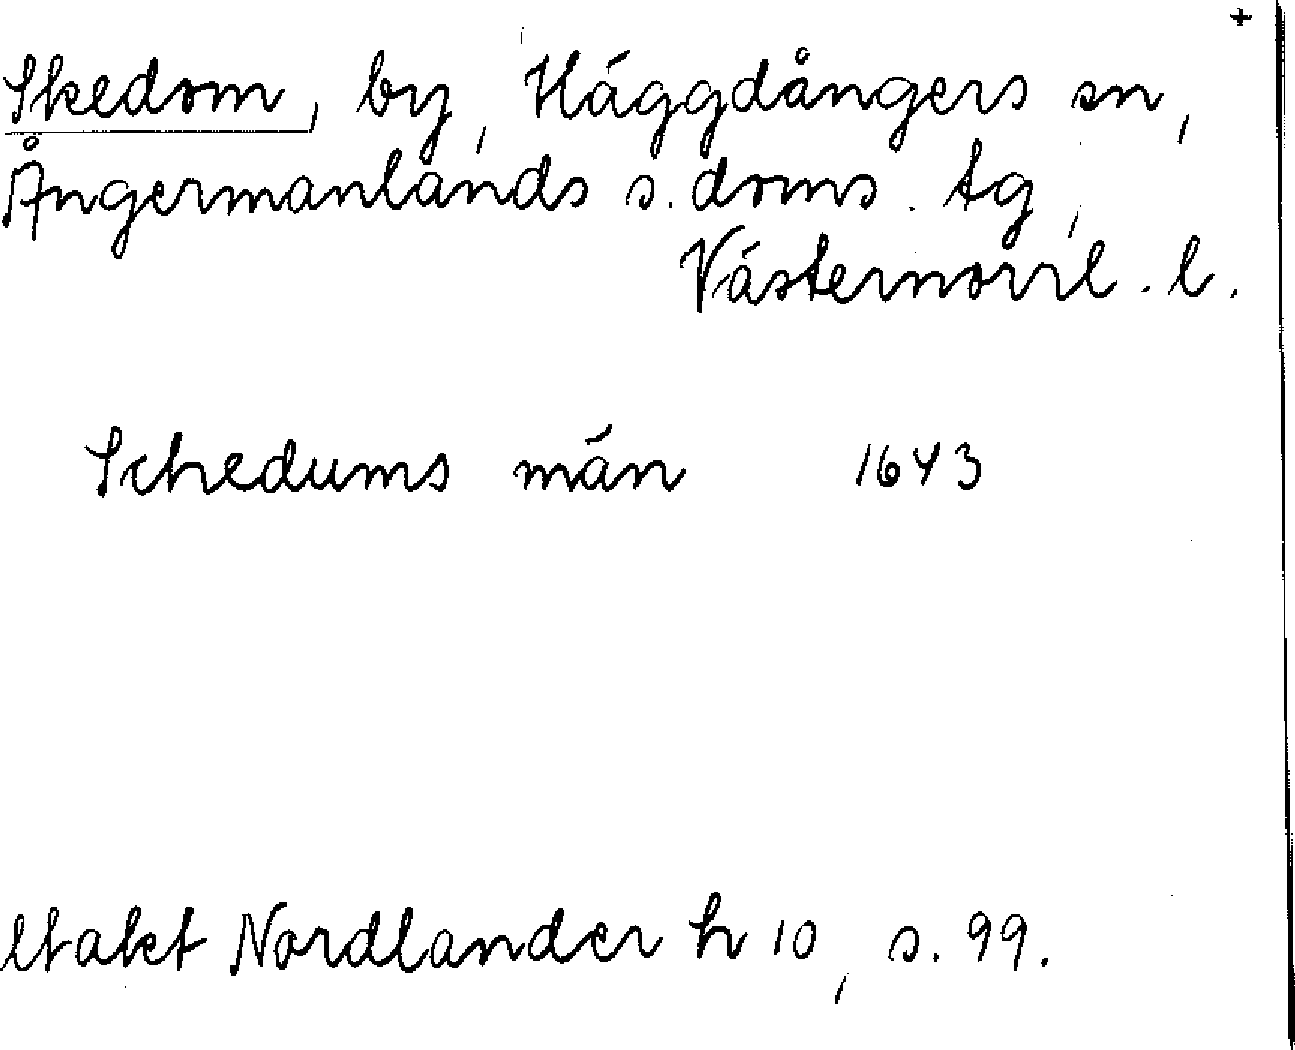 +
Skedom, by, Häggdångers sn,
Ångermanlands s. doms. tg,
Västernorrl. l.
Schedums män 1643
Utakt Nordlander h 10, s. 99.